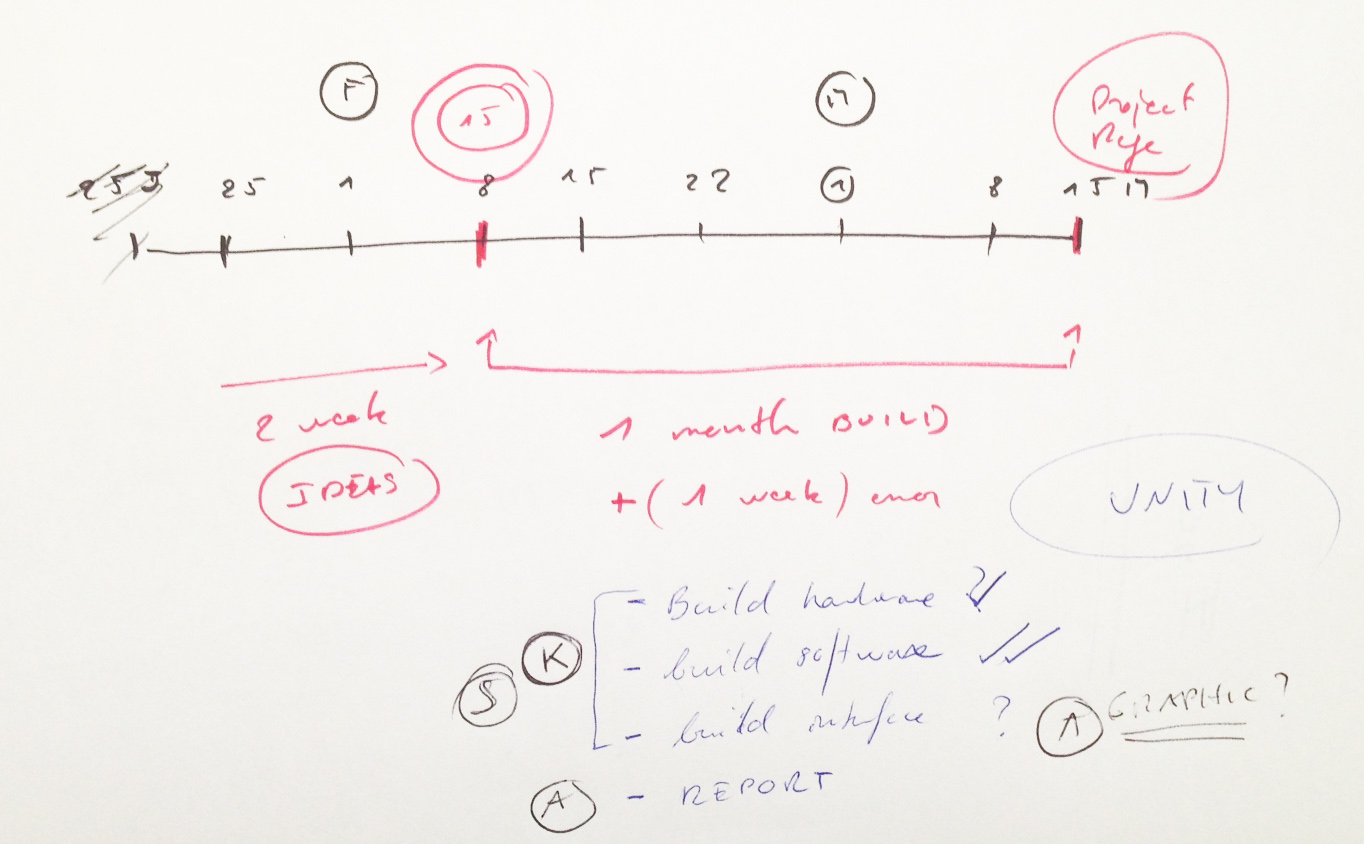 F
15
M
Project
25 1 8 15 22 1 8 15 M
2 week
IDEAS
1 month BUILD
+ (1 week) error
UNITY
- Build hardware ?✓
K
- build software ✓✓
S
- build interface ?
A GRAPHIC ?
A - REPORT